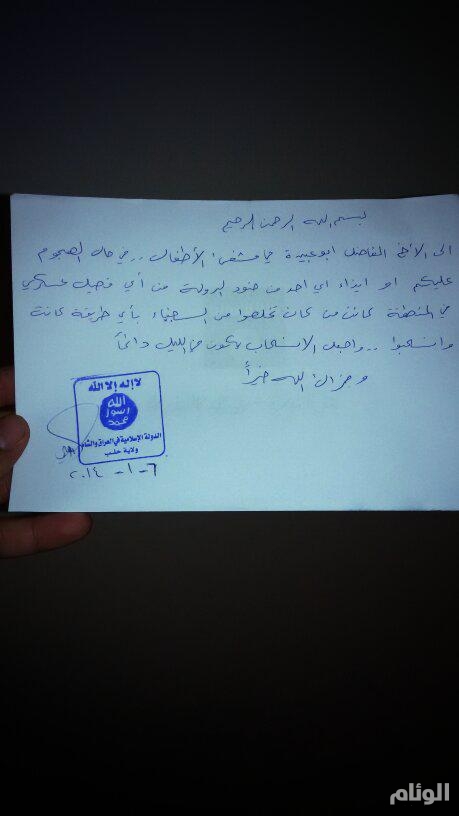 بسم الله الرحمن الرحيم
الى الأخ الفاضل ابو عبيدة في مشفى الأطفال .. في حال الهجوم
عليكم او ايذاء اي احد من جنود الدولة من أي فصيل عسكري
في المنطقة كائنا من كان تخلصوا من السجناء بأي طريقة كانت
وانسحبوا .. واجعل الانسحاب يكون في الليل دائماً
وجزاك الله خيراً
لا إله إلا الله
الله
رسول
محمد
الدولة الإسلامية في العراق والشام
ولاية حلب
٦-١-٢٠١٤
الوئام